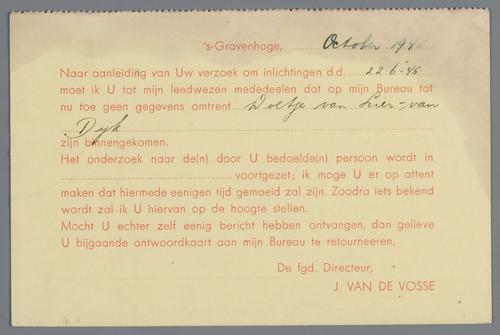 's-Gravenhage, October 1945
Naar aanleiding van Uw verzoek om inlichtingen d.d. 22-6-'45
moet ik U tot mijn leedwezen mededeelen dat op mijn Bureau tot
nu toe geen gegevens omtrent Doeltje van Lier-van
Dijk
zijn binnengekomen.
Het onderzoek naar de(n) door U bedoelde(n) persoon wordt in
voortgezet; ik moge U er op attent
maken dat hiermede eenigen tijd gemoeid zal zijn. Zoodra iets bekend
wordt zal ik U hiervan op de hoogte stellen.
Mocht U echter zelf eenig bericht hebben ontvangen, dan gelieve
U bijgaande antwoordkaart aan mijn Bureau te retourneeren.
De fgd. Directeur,
J. VAN DE VOSSE